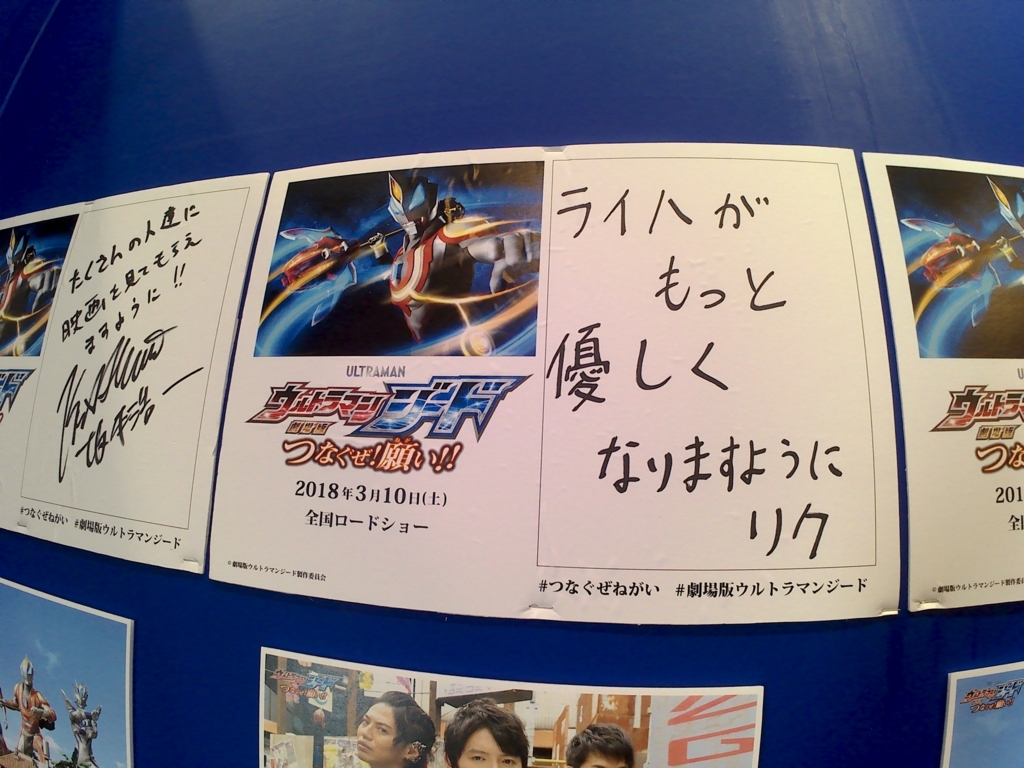 たくさんの人達に
映画を見てもらえ
ますように!!
#つなぐぜねがい #劇場版ウルトラマンジード
ULTRAMAN
ウルトラマンジード
劇場版
つなぐぜ!願い!!
2018年3月10日(土)
全国ロードショー
©劇場版ウルトラマンジード製作委員会
ライハが
もっと
優しく
なりますように
リク
#つなぐぜねがい #劇場版ウルトラマンジード
©劇場版ウルトラマンジード製作委員